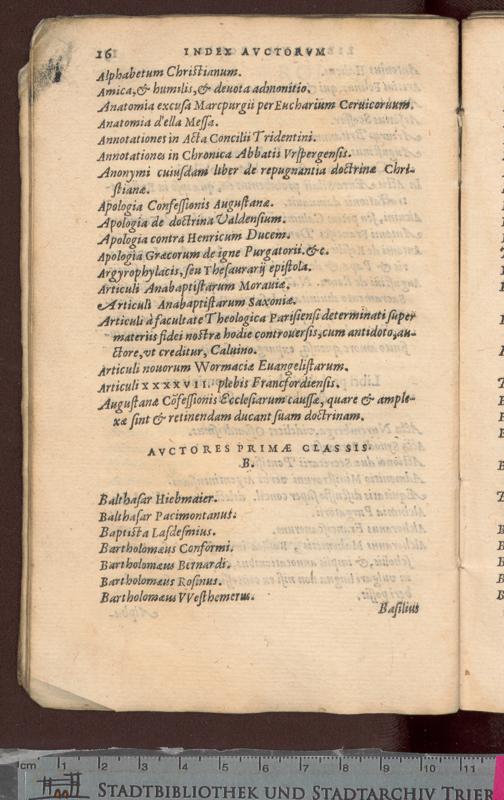 16
INDEX AVCTORVM
Alphabetum Christianum.
Amica,& humilis,& deuota admonitio.
Anatomia excusa Marcpurgii per Eucharium Ceruicornum.
Anatomia d'ella Messa.
Annotationes in Acta Concilii Tridentini.
Annotationes in Chronica Abbatis Vrspergensis.
Anonymi cuiusdam liber de repugnantia doctrinæ Chri-
stianæ.
Apologia Confessionis Augustanæ.
Apologia de doctrina Valdensium.
Apologia contra Henricum Ducem.
Apologia Græcorum de igne Purgatorii.&c.
Argyrophylacis, seu Thesaurarij epistola.
Articuli Anabaptistarum Morauiæ.
Articuli Anabaptistarum Saxoniæ.
Articuli à facultate Theologica Parisiensi determinati super
materiis fidei nostræ hodie controuersis,cum antidoto,au-
ctore,vt creditur, Caluino.
Articuli nouorum Wormaciæ Euangelistarum.
Articuli XXXXVII. plebis Francfordiensis.
Augustanæ Cõfessionis Ecclesiarum caussæ, quare & ample-
xæ sint & retinendam ducant suam doctrinam.
AVCTORES PRIMÆ CLASSIS
B.
Balthasar Hiebmaier.
Balthasar Pacimontanus.
Baptista Lasdesmius.
Bartholomæus Conformi.
Bartholomæus Bernardi.
Bartholomæus Rosinus.
Bartholomæus VVesthemerus.
Basilius
cm 1 2 3 4 5 6 7 8 9 10 11
STADTBIBLIOTHEK UND STADTARCHIV TRIER